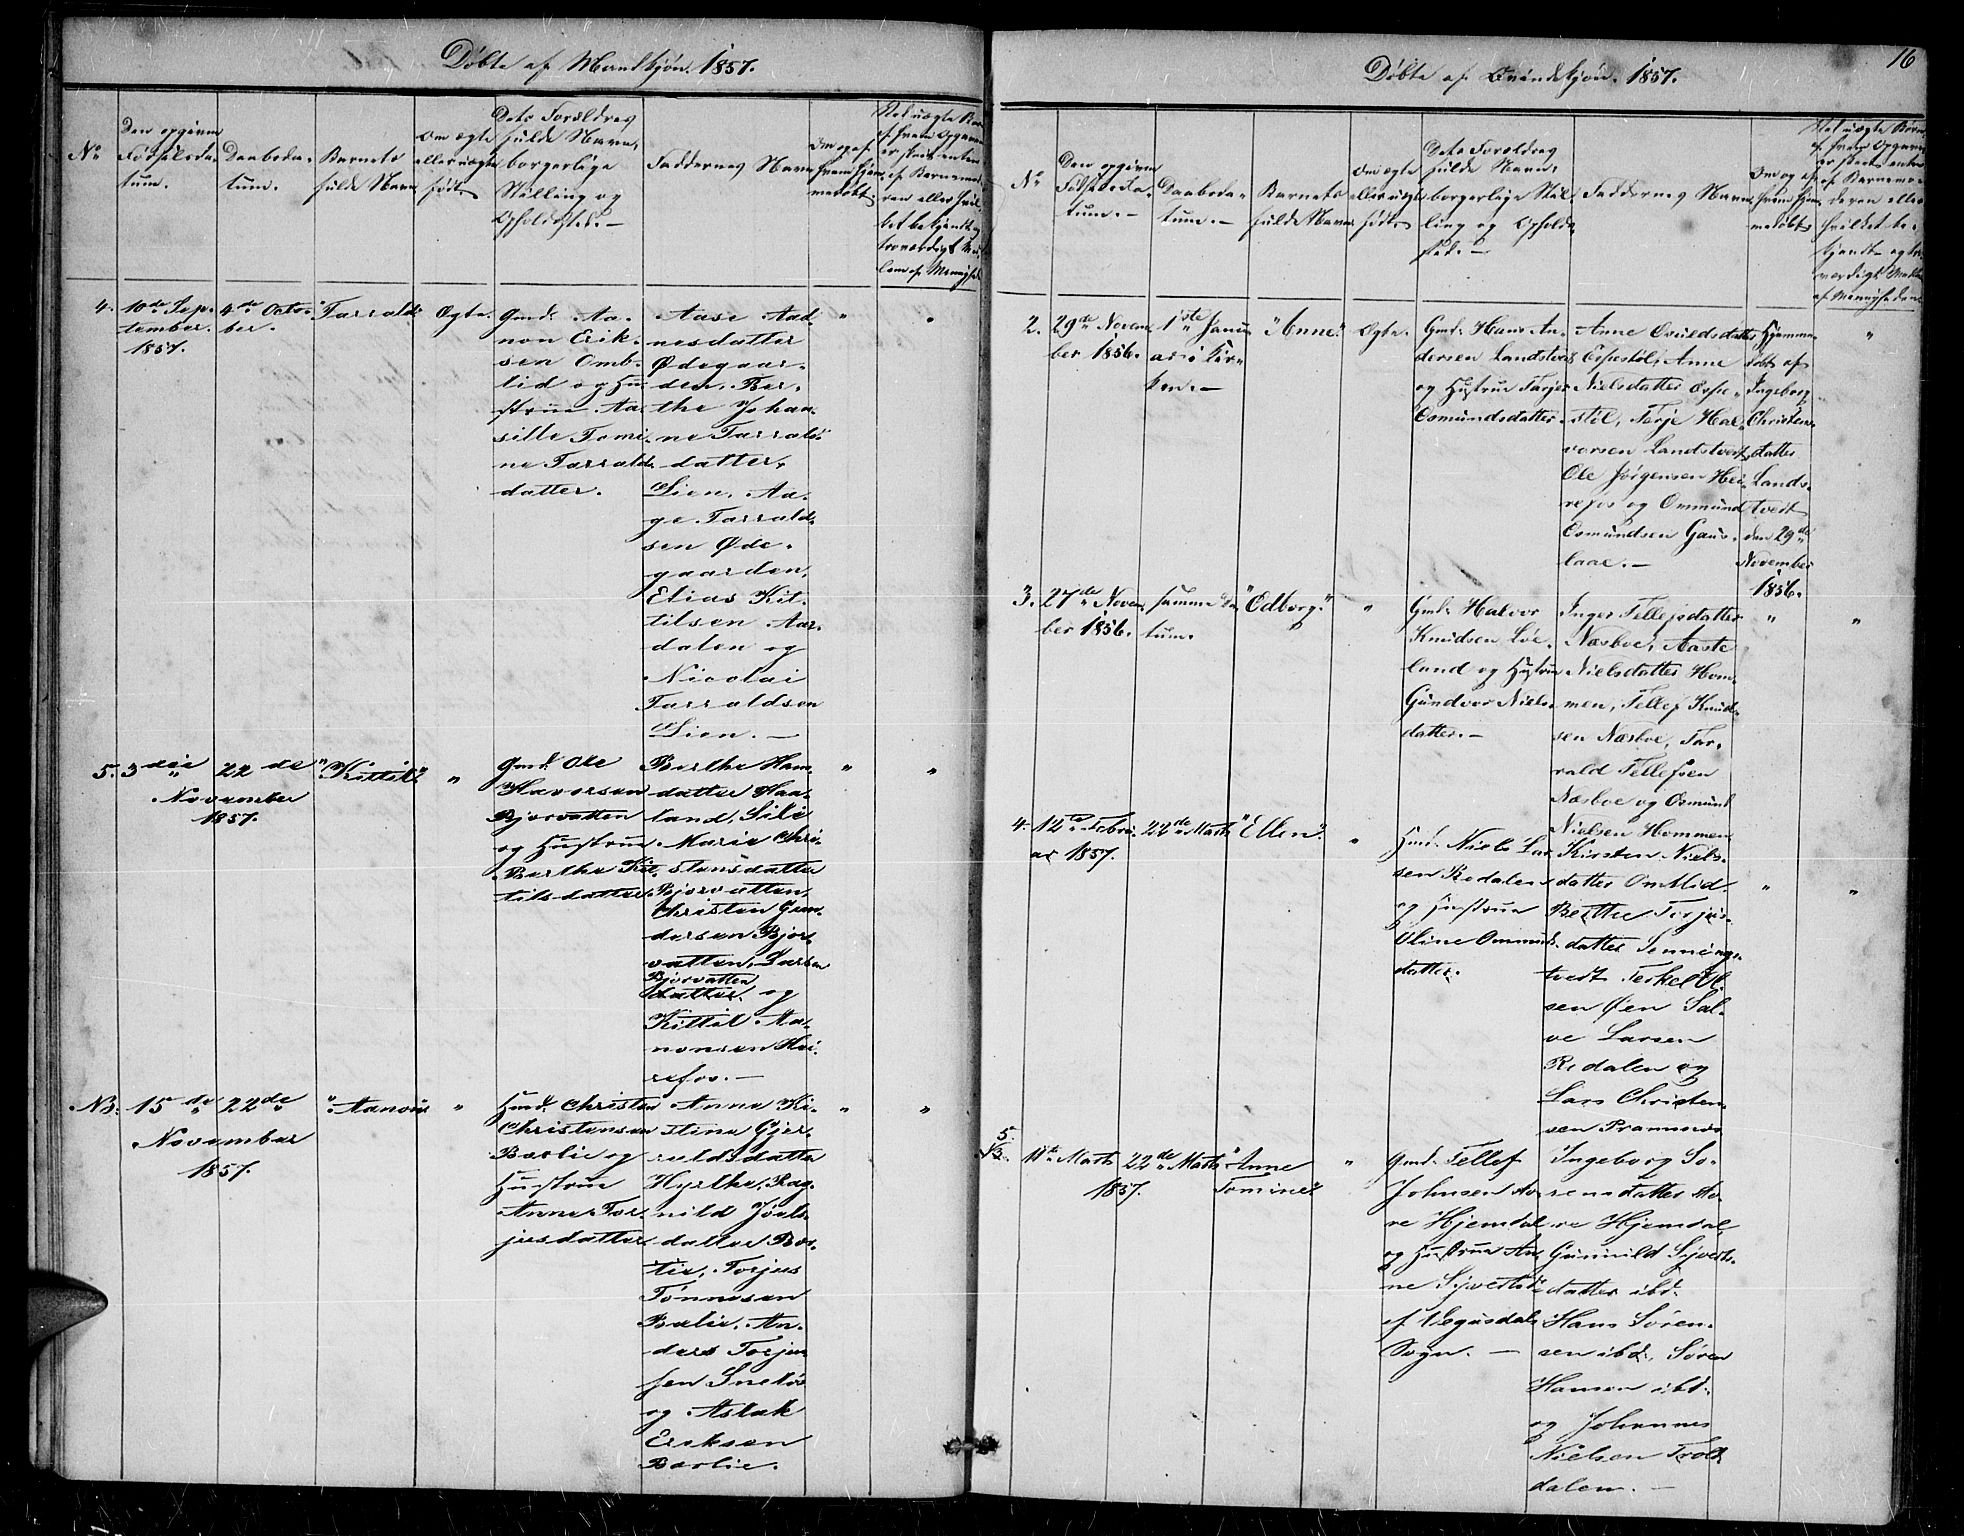 Døbte af Mandkjøn. 1857.
No
Den opgivne
Fødselsda-
tum.
Daabsda-
tum.
Barnets
fulde Navn
Om ægte
eller uægte
født.
Dets Forældres
fulde Navn,
borgerlige
Stilling og
Opholdssted.-
Faddernes Navn
4.
10de Sep-
tember.
1857.
4de Octo-
ber.
Tarrald
Ægte.
Gmd. Aa-
non Erik-
sen Omb-
lid og Hu-
strue Aa-
sille Tomi-
ne Tarralds
datter.
Aase Aad-
nesdatter
Ødegaar-
den, Ber-
the Johan-
ne Tarralds
datter,
Lien, Aa-
ge Tarrald-
sen Øde-
gaarden,
Elias Kit-
tilsen Aar-
dalen og
Nicolai
Tarraldsen
Lien.-
"
"
5.
3die
November
1857.
22de
"Kittil"
"
Gmd. Ole
Havorsen
Bjorvatten
og Hustrue
Berthe Kit-
tilsdatter
Berthe Han-
datter Haa-
land, Silie
Marie Chri-
stensdatter
Bjorvatten,
Christen Gun-
dersen Bjor-
vatten, Larsen
Bjorvatten
datter. og
Kittil Aa-
nonsen Hei-
refos.-
"
"
NB.
15de
November
1857.
22de
"Aanon
"
Hmd. Christen
Christensen
Bærlie og
Hustrue
Anne Tor-
jusdatter
Anne Ki-
stine Gjer-
uldsdatter
Hyrthe, Rag-
nild Joels-
datter Bær-
lie, Torjus
Tønnesen
Bælie, An-
ders Torju-
sen Sneløs
og Aslak
Eriksen
Bærlie.
"
"
16
Døbte af Qvindekjøn. 1857.
No
Den opgivne
Fødselsda-
tum.-
Daabsda-
tum.-
Barnets
fulde Navn
Om ægte
eller uægte
født.
Dets Forældres
fulde Navn,
borgerlige Stil-
ling og Opholds-
sted.-
Faddernes Navn
Om og af
hvem hjem-
medøbt
2.
29de Novem-
ber 1856.
1ste Janu-
ar i Kir-
ken.-
"Anne"
Ægte.
Gmd. Hans An-
dersen Landstvedt
og Hustrue Tarjer
Osmundsdatter
Anne Osuldsdatter
Espestøl, Anne
Nielsdatter Espe-
støl, Terje Hal-
vorsen Landstvedt,
Ole Jørgensen Hei-
refos og Ommund
Osmundsen Gaus-
laae.-
Hjemme-
døbt af
Ingeborg
Christens-
datter
Lands-
tvedt
den 29de
November
1856.
"
3.
27de Novem-
ber 1856.
samme Da-
tum.
"Edborg"
"
Gmd. Halvor
Knudsen Løe-
land og Hustrue
Gundvor Niels-
datter.-
Inger Tellefsdatter
Næsboe, Aaste
Nielsdatter Hom-
men, Tellef Knud-
sen Næsboe, Tar-
rald Tellefsen
Næsboe og Osmund
Nielsen Hommen
"
"
4.
12te Febru-
ar 1857.
22de Marts
"Ellen"
"
Hmd. Niels Lar-
sen Redalen
og Hustrue
Oline Ommunds-
datter.
Kirsten Niels-
datter Omlid,
Berthe Torjus-
datter Senning-
tvedt Terkel Ol-
sen Øen Sal-
ve Larsen
Redalen og
Lars Christen-
sen Pramnæs
"
"
5.
NB.
11te Marts
1857.
22de Marts
"Anne
Tomine"
"
Gmd. Tellef
Johnsen Av-
re Hjemdal
og Hustrue An-
ne Syvertsd.
af Vegusdals
Sogn. -
Ingeborg Sø-
rensdatter Av-
re Hjemdal,
Gunnild Syverts-
datter ibd.
Hans Søren-
sen ibd. Søren
Hansen ibd.
og Johannes
Nielsen Trold
dalen. -